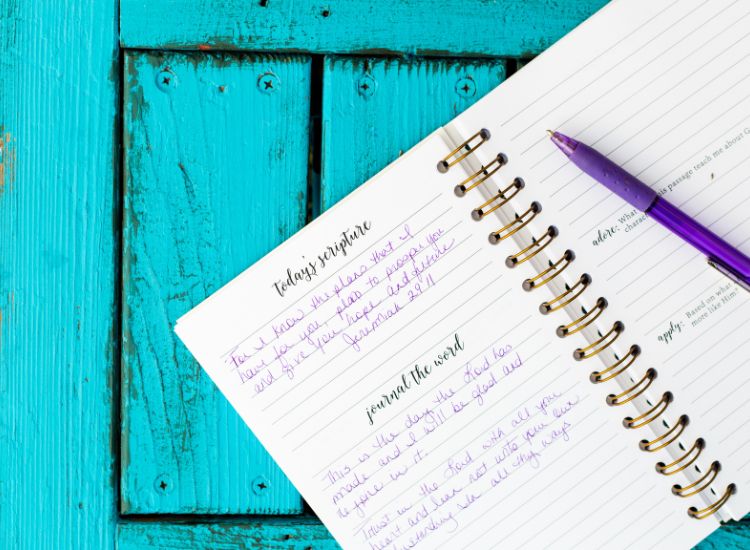 today's scripture
For I know the plans that I
have for you, plan to prosper you
and give you hope and future
Jeremiah 29:11
journal the word
This is the day the Lord has
made and I will be glad and
in it.
Trust in the Lord with all your
heart and lean not unto your own
in all thy ways
adore: What
this passage teach me about G
charac
apply: Based on what
more like Him?